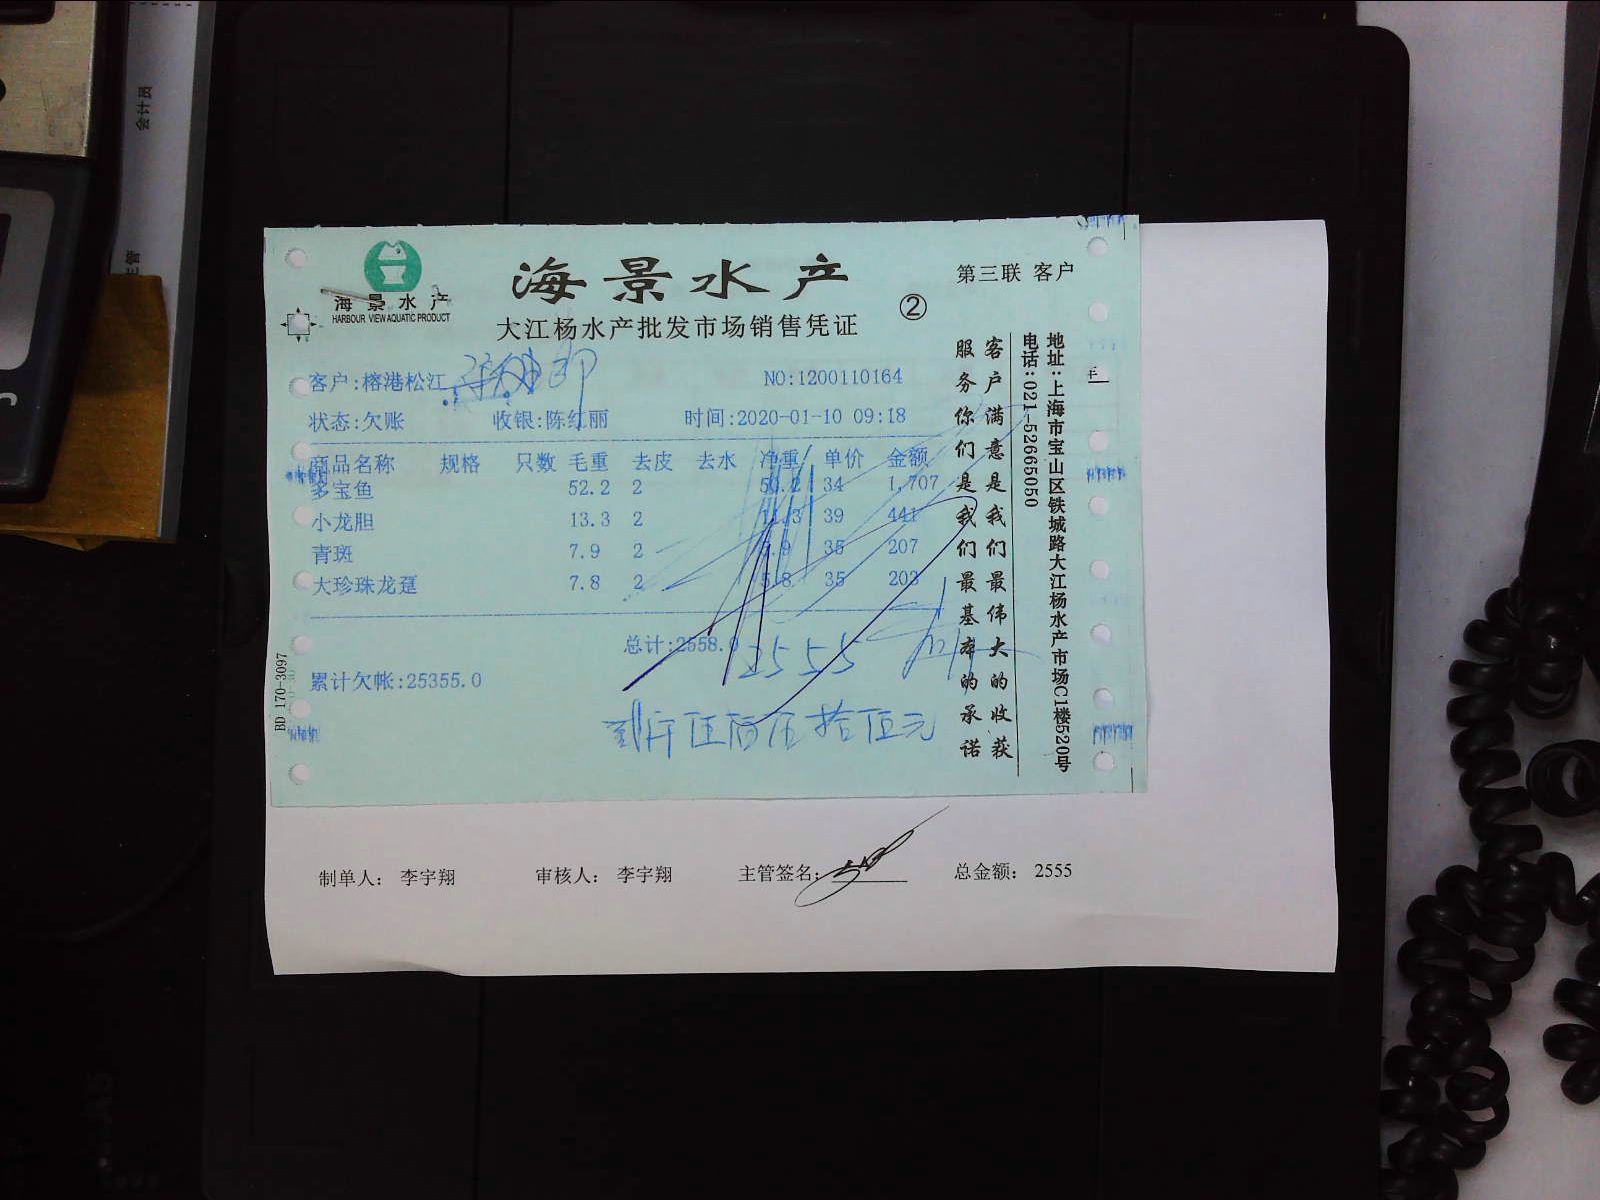 会计员
主管
海景水产
HARBOUR VIEW AQUATIC PRODUCT
海景水产
大江杨水产批发市场销售凭证
②
第三联 客户
客户:榕港松江
NO:1200110164
状态:欠账 收银:陈红丽 时间:2020-01-10 09:18
商品名称 规格 只数 毛重 去皮 去水 净重 单价 金额
多宝鱼 52.2 2 50.2 34 1,707
小龙胆 13.3 2 11.3 39 441
青斑 7.9 2 5.9 35 207
大珍珠龙趸 7.8 2 5.8 35 203
总计:2558.0
2555
累计欠帐:25355.0
贰仟伍佰伍拾伍元
BD 170-3097
客户满意是我们最伟大的收获
服务你们是我们最基本的承诺
地址:上海市宝山区铁城路大江杨水产市场C1楼520号
电话:021-52665050
制单人: 李宇翔 审核人: 李宇翔 主管签名: 总金额: 2555